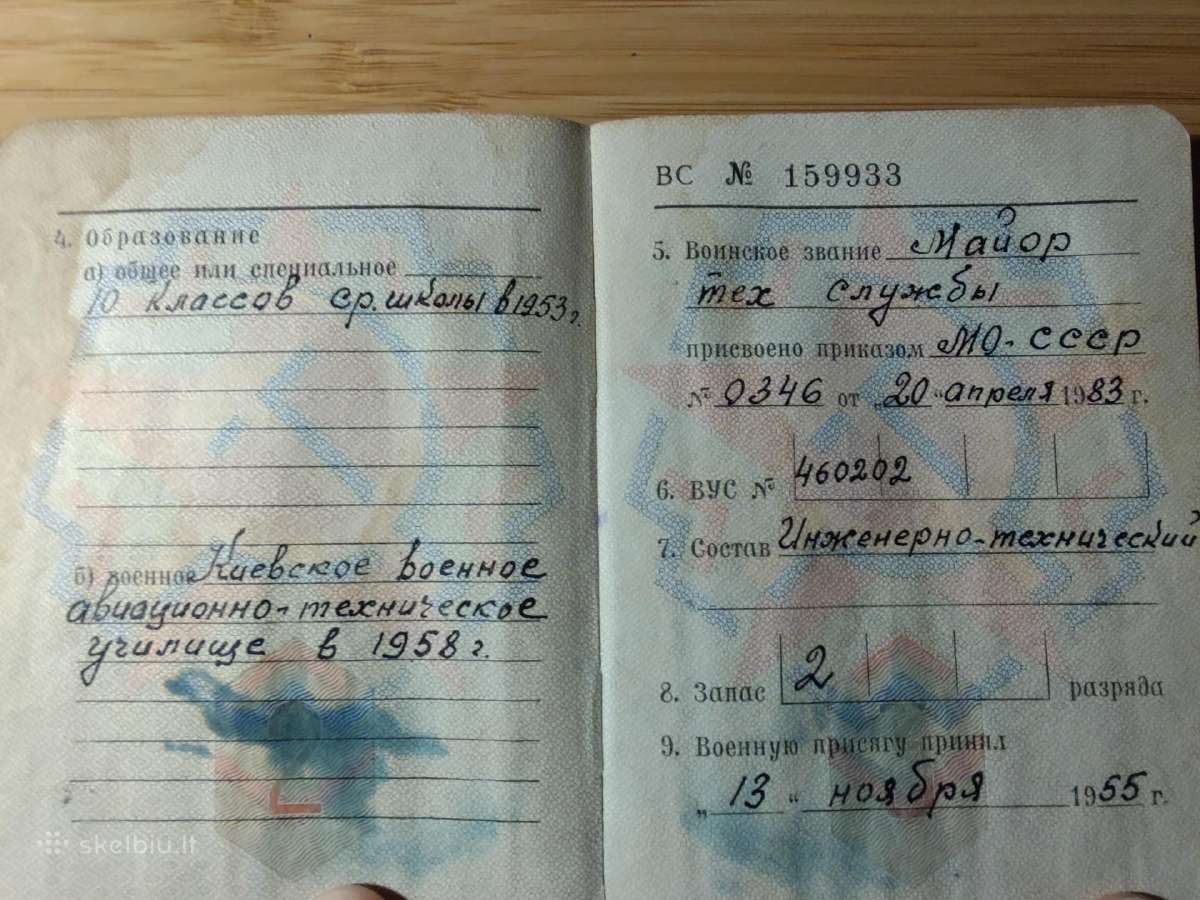 4. Образование
а) общее или специальное
10 классов ср. школы в 1953 г.
б) военное Киевское военное
авиационно-техническое
училище в 1958 г.
ВС № 159933
5. Воинское звание Майор
тех службы
присвоено приказом МО-СССР
№ 0346 от „20“ апреля 1983 г.
6. ВУС № 460202
7. Состав Инженерно-технический
8. Запас 2 разряда
9. Военную присягу принял
„13“ ноября 1955 г.
skelbiu.lt